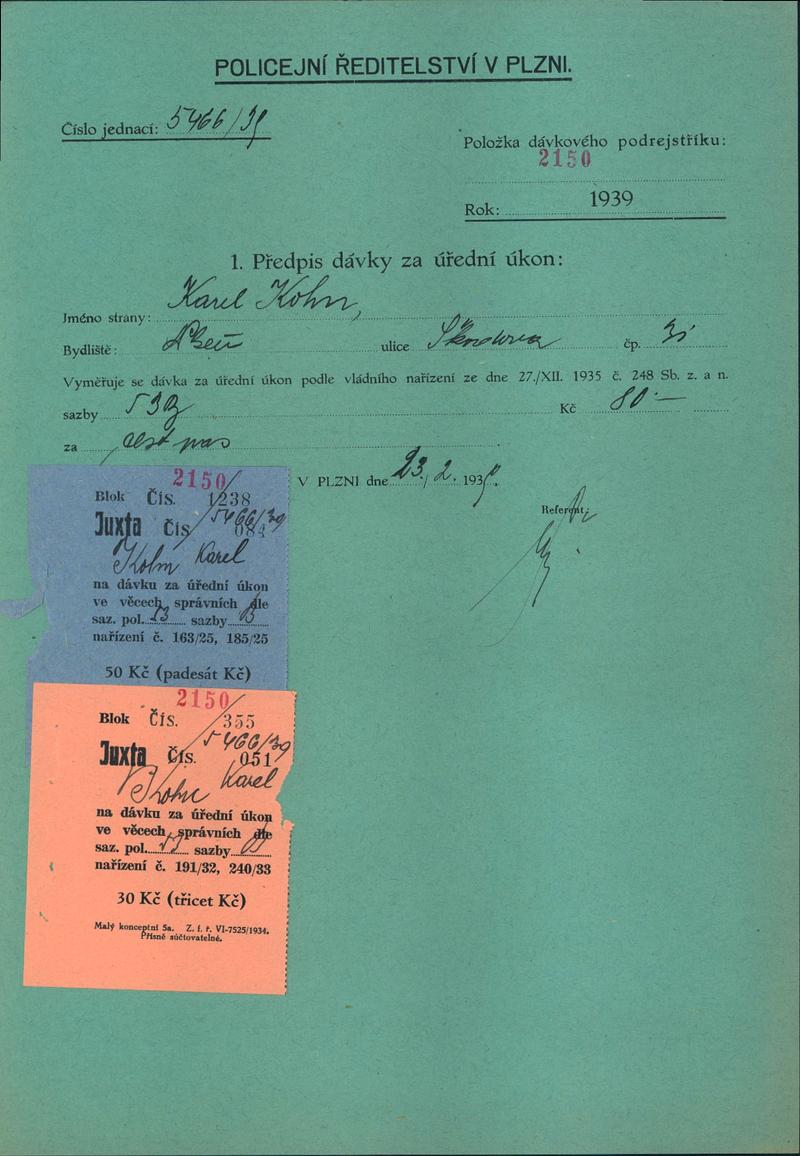 POLICEJNÍ ŘEDITELSTVÍ V PLZNI.
Číslo jednací: 5466/39
Položka dávkového podrejstříku:
2150
Rok: 1939
1. Předpis dávky za úřední úkon:
Jméno strany: Karel Kohn,
Bydliště: Plzeň ulice Škodova čp.
Vyměřuje se dávka za úřední úkon podle vládního nařízení ze dne 27./XII. 1935 č. 248 Sb. z. a n.
sazby 53B Kč 80·—
za cest pas
V PLZNI dne 23./2. 1939.
Referent:
2150
Blok Čís. 1238
5466/39
Juxta Čís 084
Kohn Karel
na dávku za úřední úkon
ve věcech správních dle
saz. pol. 53 sazby B
nařízení č. 163/25, 185/25
50 Kč (padesát Kč)
2150
Blok Čís. 355
5466/39
Juxta Čís. 051
Kohn Karel
na dávku za úřední úkon
ve věcech správních dle
saz. pol. 53 sazby B
nařízení č. 191/32, 240/33
30 Kč (třicet Kč)
Malý konceptní 5a. Z. f. ř. VI-7525/1934.
Přísně súčtovatelné.